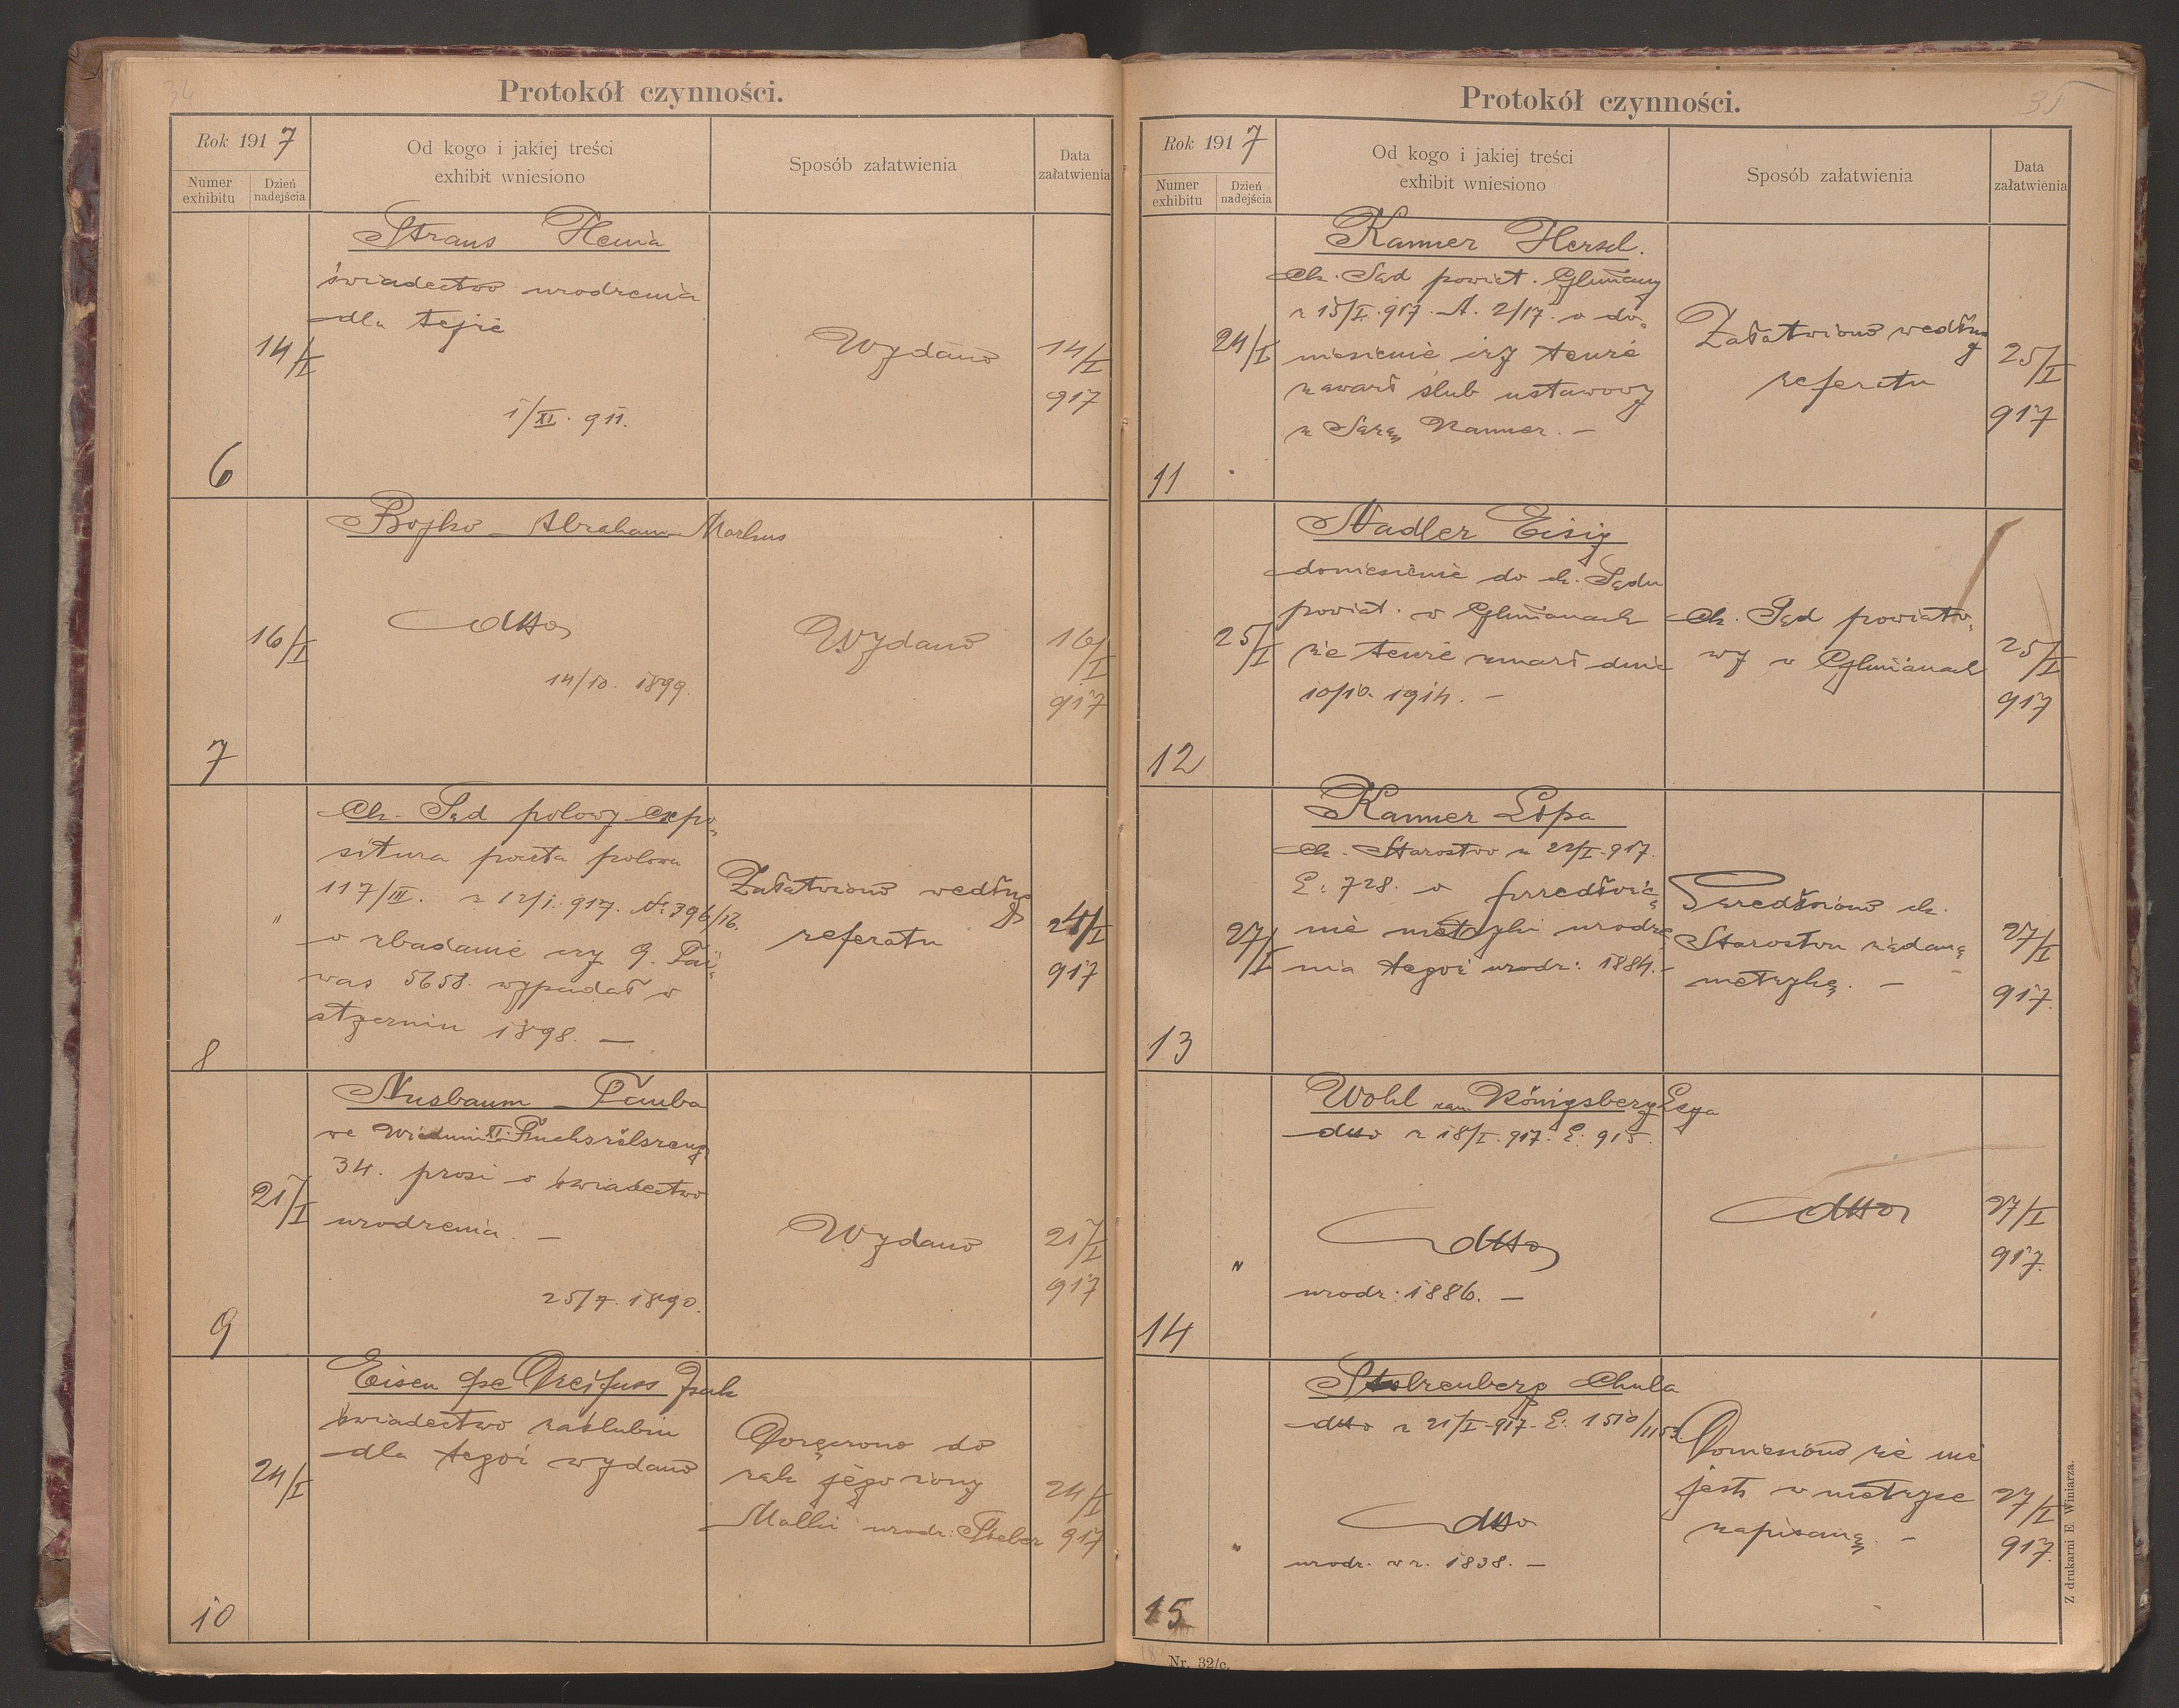 34
Protokół czynności.
Rok 1917
Numer exhibitu
Dzień nadejścia
Od kogo i jakiej treści
exhibit wniesiono
Sposób załatwienia
Data
załatwienia
Straus Henia
świadectwo urodzenia
dla tejże
14/I
Wydano
14/I
917
1/XI. 911.
6
Bojko Abraham Markus
dtto
16/I
Wydano
16/I
917
14/10. 1899.
7
Ck. Sąd polowy expo-
situra poczta polowa
117/III. z 12/1. 917. 396/16.
o zbadanie czy 9.
was 5658. wypadał w
styczniu 1898. —
"
Załatwiono według
referatu
24/I
917
8
Nusbaum Tauba
we Wiedniu XI.
34. prosi o świadectwo
urodzenia. —
21/I
Wydano
21/I
917
25/7. 1890.
9
Eisen Dreifuss
świadectwo zaślubin
dla tegoż wydano
24/I
Doręczono do
rąk jego żony
Malki urodz:
24/I
917
10
35
Protokół czynności.
Rok 1917
Numer exhibitu
Dzień nadejścia
Od kogo i jakiej treści
exhibit wniesiono
Sposób załatwienia
Data
załatwienia
Kanner Hersch.
Ck. Sąd powiat. Gliniany
z 15/I. 917. A. 2/17. o do-
niesienie czy tenże
zawarł ślub ustawowy
z Sarą Kanner. —
24/I
Załatwiono według
referatu
25/I
917
11
Nadler Eisig
doniesienie do ck. Sądu
powiat. w Glinianach
że tenże zmarł dnia
10/10. 1914. —
25/I
Ck. Sąd powiato-
wy w Glinianach
25/I
917
12
Kanner Lipa
Ck. Starostwo z 22/I. 917.
L: 728. o
nie metryki urodze-
nia tegoż urodz: 1884. —
27/I
ck.
Starostwu żądaną
metrykę. —
27/I
917.
13
Wohl Königsberg
dtto z 18/I. 917. L: 915.
dtto
urodz: 1886. —
"
dtto
27/I
917.
14
Chula
dtto z 21/I. 917. L:
dtto
urodz. w r. 1838. —
"
Doniesiono że nie
jest w metryce
zapisaną. —
27/I
917.
15
Nr. 32/c.
Z drukarni E. Winiarza.